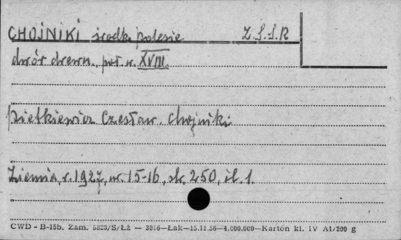 CHOJNIKI środk. polesie Z.S.S.R
dwór drewn. poł. w. XVIII.
Pietkiewicz Czesław. Chojniki
Ziemia, r. 1927, nr. 15-16, str. 250, il. 1.
CWD - B-15b. Zam. 5823/S/Lż — 3056—Łak—15.11.56—4.000.000—Karton kl. IV A1/200 g